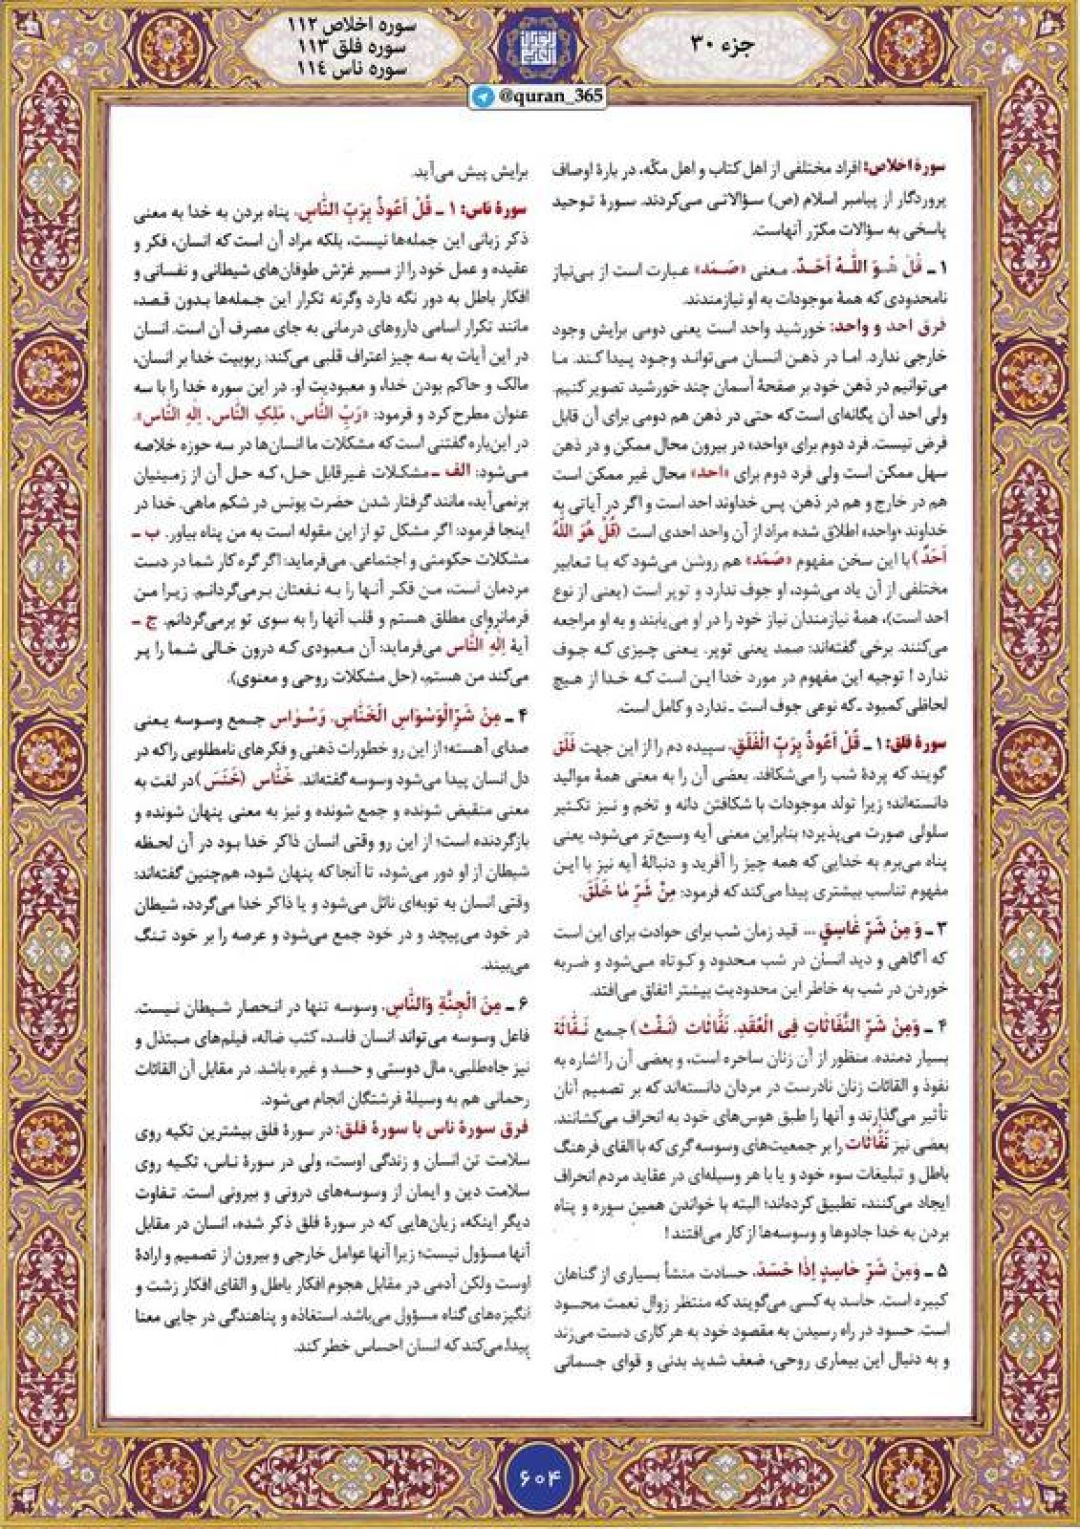 جزء ۳۰
سوره اخلاص ۱۱۲
سوره فلق ۱۱۳
سوره ناس ۱۱٤
@quran_365
سورهٔ اخلاص: افراد مختلفی از اهل کتاب و اهل مکّه، در بارهٔ اوصاف
پروردگار از پیامبر اسلام (ص) سؤالاتی می‌کردند. سورهٔ توحید
پاسخی به سؤالات مکرّر آنهاست.
۱ ـ قُلْ هُوَ اللَّهُ أَحَدٌ. معنی «صَمَد» عبارت است از بی‌نیاز
نامحدودی که همهٔ موجودات به او نیازمندند.
فرق احد و واحد: خورشید واحد است یعنی دومی برایش وجود
خارجی ندارد. اما در ذهن انسان می‌تواند وجود پیدا کند. ما
می‌توانیم در ذهن خود بر صفحهٔ آسمان چند خورشید تصویر کنیم.
ولی احد آن یگانه‌ای است که حتی در ذهن هم دومی برای آن قابل
فرض نیست. فرد دوم برای «واحد» در بیرون محال ممکن و در ذهن
سهل ممکن است ولی فرد دوم برای «احد» محال غیر ممکن است
هم در خارج و هم در ذهن. پس خداوند احد است و اگر در آیاتی به
خداوند «واحد» اطلاق شده مراد از آن واحد احدی است (قُلْ هُوَ اللَّهُ
أَحَدٌ) با این سخن مفهوم «صَمَد» هم روشن می‌شود که با تعابیر
مختلفی از آن یاد می‌شود، او جوف ندارد و توپر است (یعنی از نوع
احد است)، همهٔ نیازمندان نیاز خود را در او می‌یابند و به او مراجعه
می‌کنند. برخی گفته‌اند: صمد یعنی توپر. یعنی چیزی که جوف
ندارد! توجیه این مفهوم در مورد خدا این است که خدا از هیچ
لحاظی کمبود ـ که نوعی جوف است ـ ندارد و کامل است.
سورهٔ فلق: ۱ ـ قُلْ أَعُوذُ بِرَبِّ الْفَلَقِ. سپیده دم را از این جهت فَلَق
گویند که پردهٔ شب را می‌شکافد. بعضی آن را به معنی همهٔ موالید
دانسته‌اند؛ زیرا تولد موجودات با شکافتن دانه و تخم و نیز تکثیر
سلولی صورت می‌پذیرد؛ بنابراین معنی آیه وسیع‌تر می‌شود، یعنی
پناه می‌برم به خدایی که همه چیز را آفرید و دنبالهٔ آیه نیز با این
مفهوم تناسب بیشتری پیدا می‌کند که فرمود: مِنْ شَرِّ مَا خَلَقَ.
۳ ـ وَ مِنْ شَرِّ غَاسِقٍ ... قید زمان شب برای حوادث برای این است
که آگاهی و دید انسان در شب محدود و کوتاه می‌شود و ضربه
خوردن در شب به خاطر این محدودیت بیشتر اتفاق می‌افتد.
۴ ـ وَمِنْ شَرِّ النَّفَّاثَاتِ فِي الْعُقَدِ. نَفَّاثَات (نَـفْث) جمع نَـفَّاثَة
بسیار دمنده. منظور از آن زنان ساحره است، و بعضی آن را اشاره به
نفوذ و القائات زنان نادرست در مردان دانسته‌اند که بر تصمیم آنان
تأثیر می‌گذارند و آنها را طبق هوس‌های خود به انحراف می‌کشانند.
بعضی نیز نَفَّاثَات را بر جمعیت‌های وسوسه گری که با القای فرهنگ
باطل و تبلیغات سوء خود و یا با هر وسیله‌ای در عقاید مردم انحراف
ایجاد می‌کنند، تطبیق کرده‌اند؛ البته با خواندن همین سوره و پناه
بردن به خدا جادوها و وسوسه‌ها از کار می‌افتند!
۵ ـ وَمِنْ شَرِّ حَاسِدٍ إِذَا حَسَدَ. حسادت منشأ بسیاری از گناهان
کبیره است. حاسد به کسی می‌گویند که منتظر زوال نعمت محسود
است. حسود در راه رسیدن به مقصود خود به هر کاری دست می‌زند
و به دنبال این بیماری روحی، ضعف شدید بدنی و قوای جسمانی
برایش پیش می‌آید.
سورهٔ ناس: ۱ ـ قُلْ أَعُوذُ بِرَبِّ النَّاسِ. پناه بردن به خدا به معنی
ذکر زبانی این جمله‌ها نیست، بلکه مراد آن است که انسان، فکر و
عقیده و عمل خود را از مسیر غرّش طوفان‌های شیطانی و نفسانی و
افکار باطل به دور نگه دارد وگرنه تکرار این جمله‌ها بدون قصد،
مانند تکرار اسامی داروهای درمانی به جای مصرف آن است. انسان
در این آیات به سه چیز اعتراف قلبی می‌کند: ربوبیت خدا بر انسان،
مالک و حاکم بودن خدا، و معبودیت او. در این سوره خدا را با سه
عنوان مطرح کرد و فرمود: «رَبِّ النَّاس، مَلِکِ النَّاس، إِلٰهِ النَّاس».
در این‌باره گفتنی است که مشکلات ما انسان‌ها در سه حوزه خلاصه
می‌شود: الف ـ مشکلات غیرقابل حل، که حل آن از زمینیان
برنمی‌آید، مانند گرفتار شدن حضرت یونس در شکم ماهی. خدا در
اینجا فرمود: اگر مشکل تو از این مقوله است به من پناه بیاور. ب ـ
مشکلات حکومتی و اجتماعی، می‌فرماید: اگر گره کار شما در دست
مردمان است، من فکر آنها را به نفعتان برمی‌گردانم. زیرا من
فرمانروای مطلق هستم و قلب آنها را به سوی تو برمی‌گردانم. ج ـ
آیهٔ إِلٰهِ النَّاس می‌فرماید: آن معبودی که درون خالی شما را پر
می‌کند من هستم، (حل مشکلات روحی و معنوی).
۴ ـ مِنْ شَرِّ الْوَسْوَاسِ الْخَنَّاسِ. وَسْوَاس جمع وسوسه یعنی
صدای آهسته؛ از این رو خطورات ذهنی و فکرهای نامطلوبی را که در
دل انسان پیدا می‌شود وسوسه گفته‌اند. خَنَّاس (خَنَسَ) در لغت به
معنی منقبض شونده و جمع شونده و نیز به معنی پنهان شونده و
بازگردنده است؛ از این رو وقتی انسان ذاکر خدا بود در آن لحظه
شیطان از او دور می‌شود، تا آنجا که پنهان شود، هم‌چنین گفته‌اند:
وقتی انسان به توبه‌ای نائل می‌شود و یا ذاکر خدا می‌گردد، شیطان
در خود می‌پیچد و در خود جمع می‌شود و عرصه را بر خود تنگ
می‌بیند.
۶ ـ مِنَ الْجِنَّةِ وَالنَّاسِ. وسوسه تنها در انحصار شیطان نیست.
فاعل وسوسه می‌تواند انسان فاسد، کتب ضاله، فیلم‌های مبتذل و
نیز جاه‌طلبی، مال دوستی و حسد و غیره باشد. در مقابل آن القائات
رحمانی هم به وسیلهٔ فرشتگان انجام می‌شود.
فرق سورهٔ ناس با سورهٔ فلق: در سورهٔ فلق بیشترین تکیه روی
سلامت تن انسان و زندگی اوست، ولی در سورهٔ ناس، تکیه روی
سلامت دین و ایمان از وسوسه‌های درونی و بیرونی است. تفاوت
دیگر اینکه، زیان‌هایی که در سورهٔ فلق ذکر شده، انسان در مقابل
آنها مسؤول نیست؛ زیرا آنها عوامل خارجی و بیرون از تصمیم و ارادهٔ
اوست ولکن آدمی در مقابل هجوم افکار باطل و القای افکار زشت و
انگیزه‌های گناه مسؤول می‌باشد. استعاذه و پناهندگی در جایی معنا
پیدا می‌کند که انسان احساس خطر کند.
۶۰۴